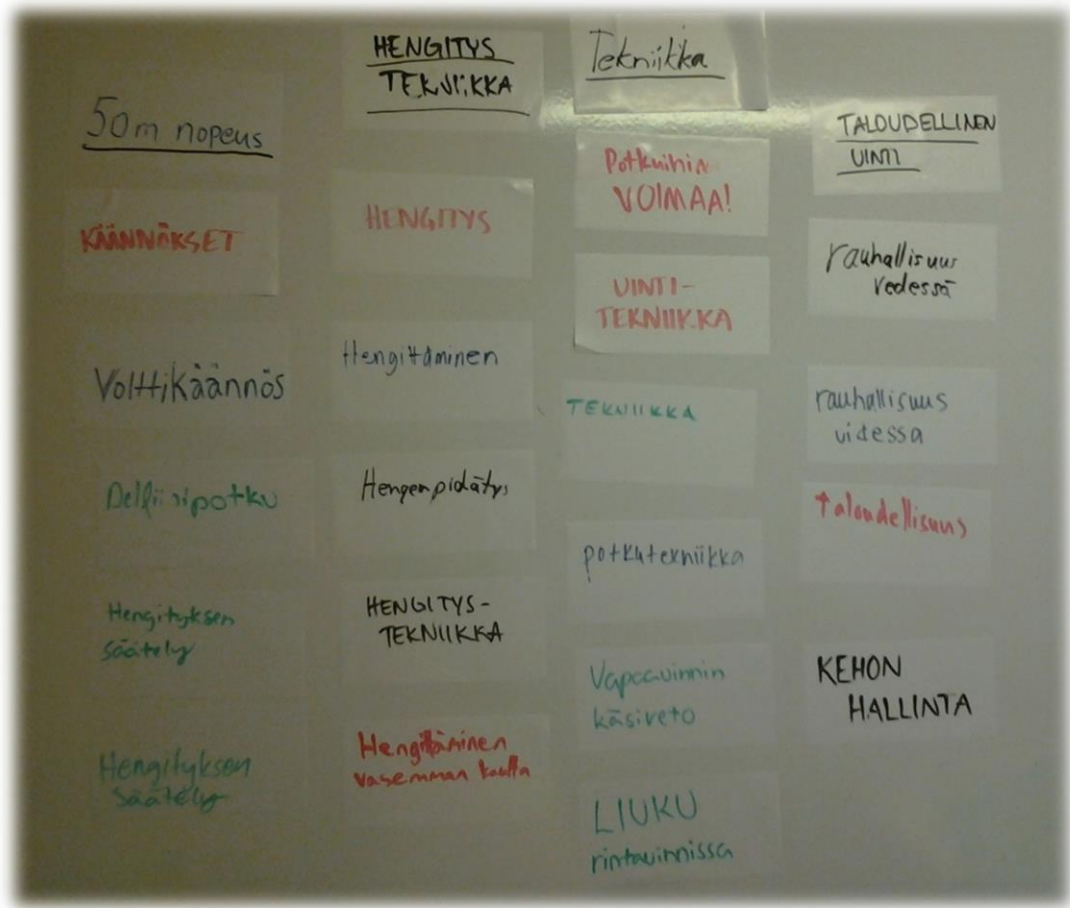 50m nopeus
KÄÄNNÖKSET
Volttikäännös
Delfiinipotku
Hengityksen
säätely
Hengityksen
säätely
HENGITYS
TEKNIIKKA
HENGITYS
Hengittäminen
Hengenpidätys
HENGITYS-
TEKNIIKKA
Hengittäminen
vasemman kautta
Tekniikka
Potkuihin
VOIMAA!
UINTI-
TEKNIIKKA
TEKNIIKKA
potkutekniikka
Vapaauinnin
käsiveto
LIUKU
rintauinnissa
TALOUDELLINEN
UINTI
rauhallisuus
vedessä
rauhallisuus
videssa
Taloudellisuus
KEHON
HALLINTA